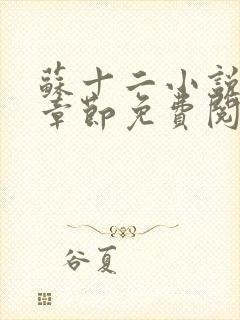 蘇十二小說
章節免費閱
谷夏